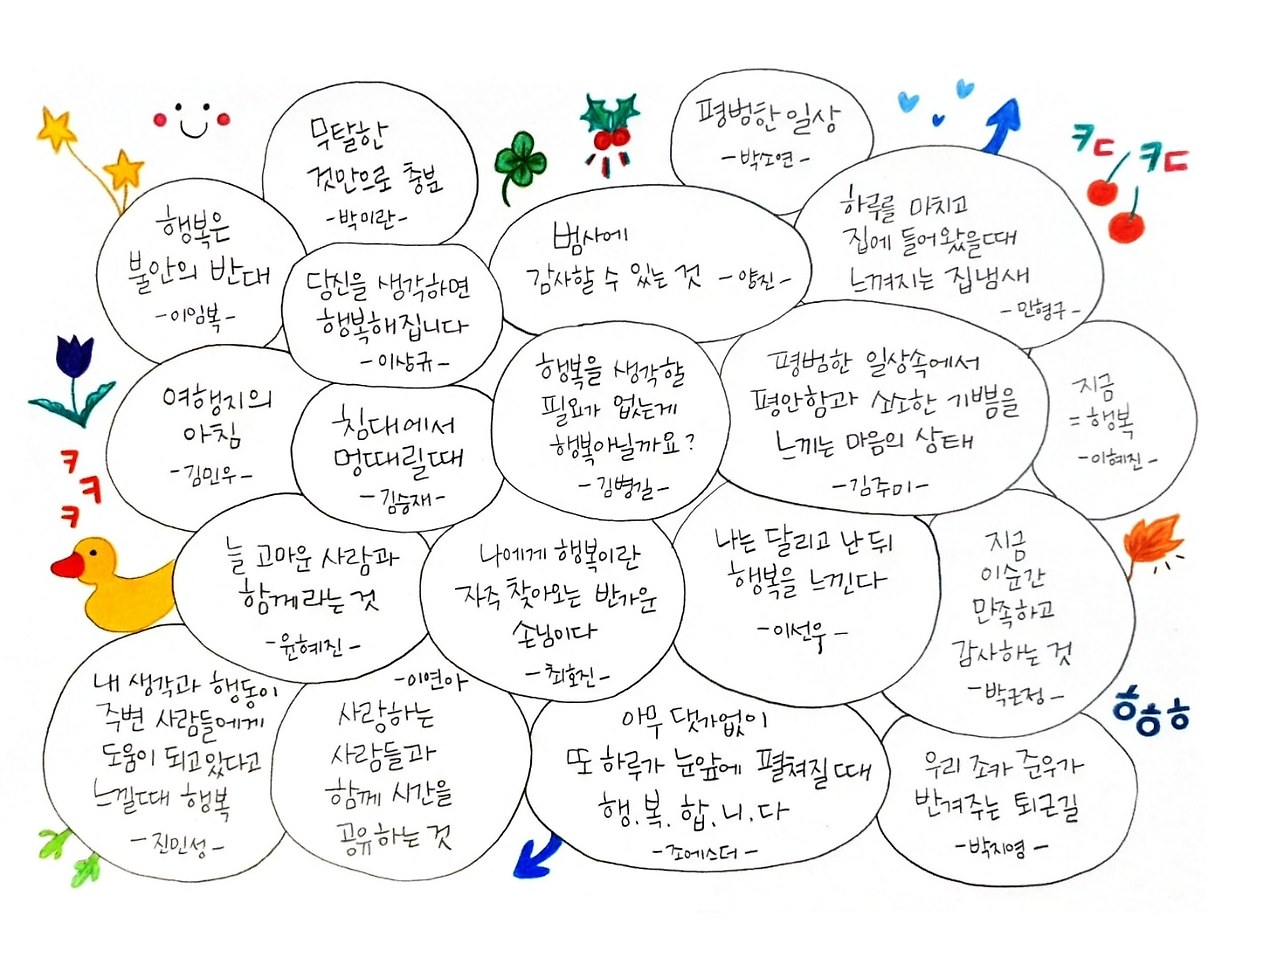 무탈한
것만으로 충분
-박미란-
평범한 일상
-박소연-
행복은
불안의 반대
-이임복-
당신을 생각하면
행복해집니다
-이상규-
범사에
감사할 수 있는 것 -양진-
하루를 마치고
집에 들어왔을때
느껴지는 집냄새
-민형구-
ㅋㄷ
ㅋㄷ
여행지의
아침
-김민우-
침대에서
멍때릴때
-김승재-
행복을 생각할
필요가 없는게
행복아닐까요?
-김병길-
평범한 일상속에서
평안함과 소소한 기쁨을
느끼는 마음의 상태
-김주미-
지금
=행복
-이혜진-
ㅋ
ㅋ
ㅋ
늘 고마운 사람과
함께라는 것
-윤혜진-
나에게 행복이란
자주 찾아오는 반가운
손님이다
-최호진-
나는 달리고 난 뒤
행복을 느낀다
-이선우-
지금
이순간
만족하고
감사하는 것
-박근정-
내 생각과 행동이
주변 사람들에게
도움이 되고있다고
느낄때 행복
-진민성-
-이연아
사랑하는
사람들과
함께 시간을
공유하는 것
아무 댓가없이
또 하루가 눈앞에 펼쳐질때
행.복.합.니.다
-조에스더-
우리 조카 준우가
반겨주는 퇴근길
-박지영-
ㅎㅎㅎ